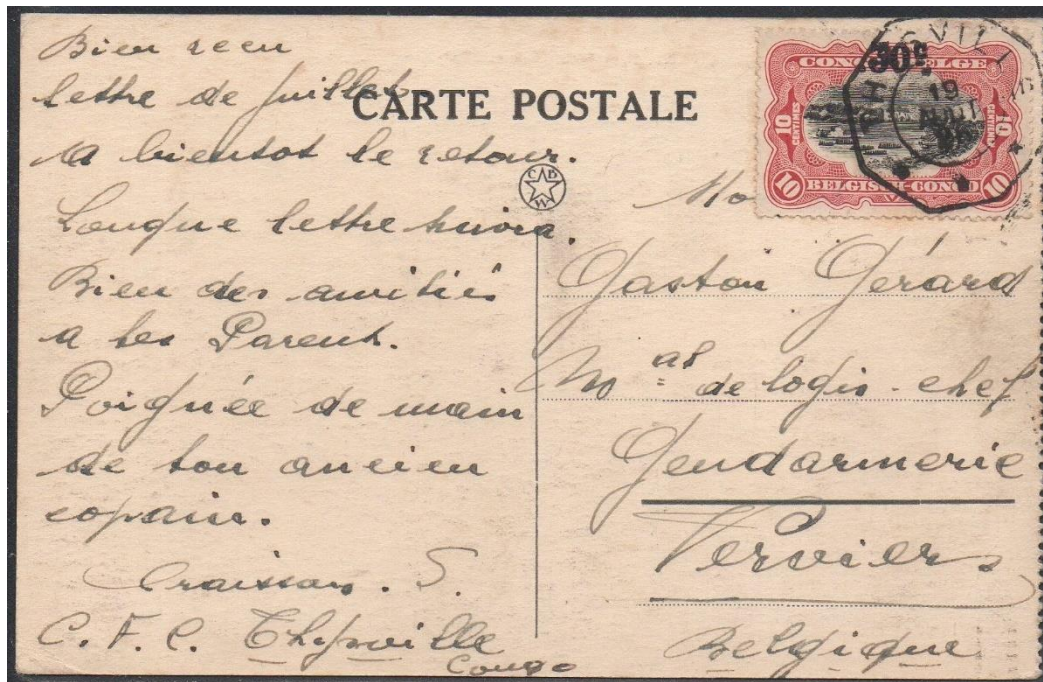 Bien recu
lettre de juillet
CARTE POSTALE
a bientot le retour.
Longue lettre suivra.
Bien des amitiés
a tes Parents.
Poignée de main
de ton ancien
copain.
S.
C. F. C. Thysville
Congo
C D
W
CONGO BELGE
30c
10
CENTIMES
10
CENTIEMEN
10
BELGISCH-CONGO
10
THYSVILLE
19
AOUT
Mo
Gaston Gérard
Mo al de logis-chef
Gendarmerie
Verviers
Belgique